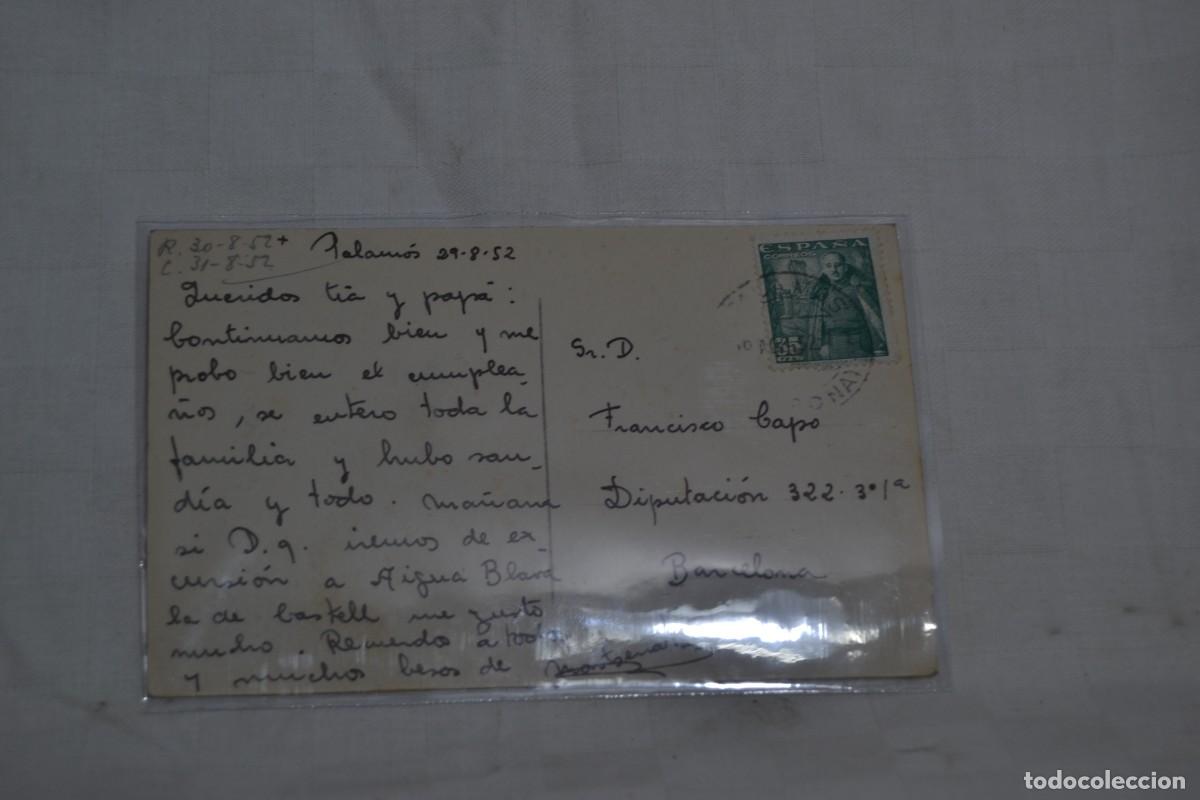 R. 30-8-52+
C. 31-8-52
Palamós 29·8·52
Queridos tía y papá:
Continuamos bien y me
probo bien el cumplea-
ños, se entero toda la
familia y hubo san-
día y todo. mañana
si D.q. iremos de ex-
cursión a Aigua Blava
la de Castell me gusto
mucho. Recuerdo a toda
y muchos besos de Montserrat
ESPAÑA
CORREOS
35
CTS
ONA)
Sr. D.
Francisco Capo
Diputación 322· 3º 1ª
Barcelona
todocoleccion